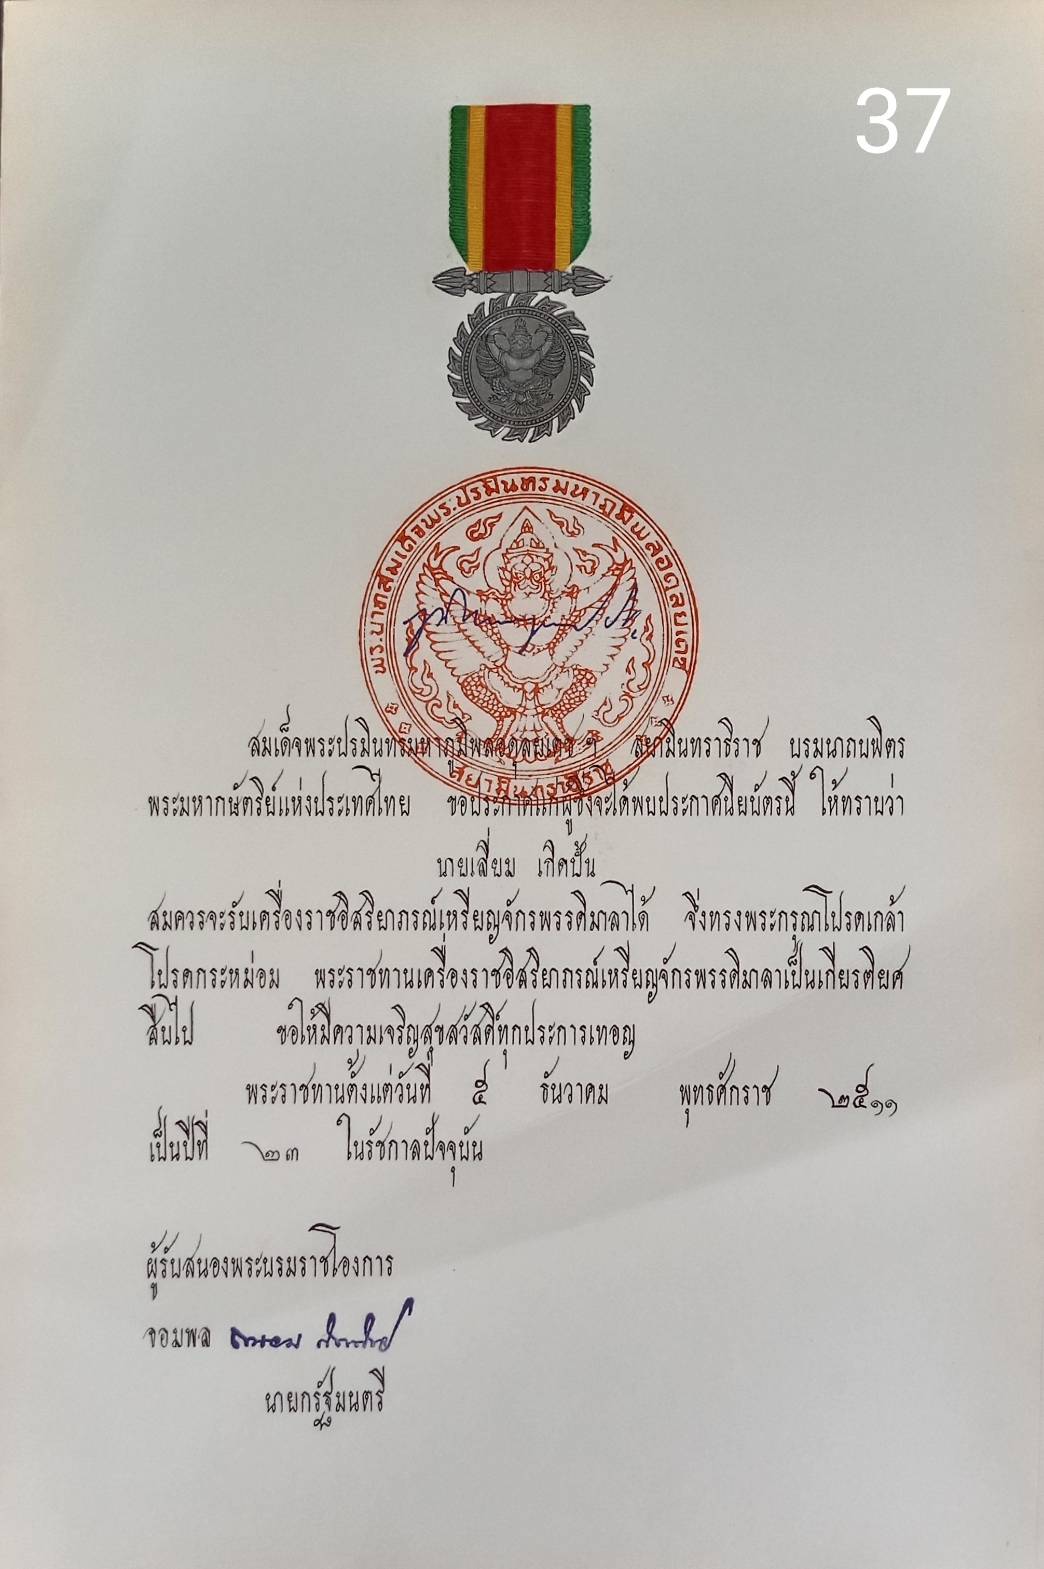 37
พระบาทสมเด็จพระปรมินทรมหาภูมิพลอดุลยเดช
สยามินทราธิราช
สมเด็จพระปรมินทรมหาภูมิพลอดุลยเดช ฯ สยามินทราธิราช บรมนาถบพิตร
พระมหากษัตริย์แห่งประเทศไทย ขอประกาศแก่ผู้ซึ่งจะได้พบประกาศนียบัตรนี้ ให้ทราบว่า
นายเสี่ยม เกิดปั้น
สมควรจะรับเครื่องราชอิสริยาภรณ์เหรียญจักรพรรดิมาลาได้ จึ่งทรงพระกรุณาโปรดเกล้า
โปรดกระหม่อม พระราชทานเครื่องราชอิสริยาภรณ์เหรียญจักรพรรดิมาลาเป็นเกียรติยศ
สืบไป ขอให้มีความเจริญสุขสวัสดิ์ทุกประการเทอญ
พระราชทานตั้งแต่วันที่ ๕ ธันวาคม พุทธศักราช ๒๕๑๑
เป็นปีที่ ๒๓ ในรัชกาลปัจจุบัน
ผู้รับสนองพระบรมราชโองการ
จอมพล ถนอม กิตติขจร
นายกรัฐมนตรี